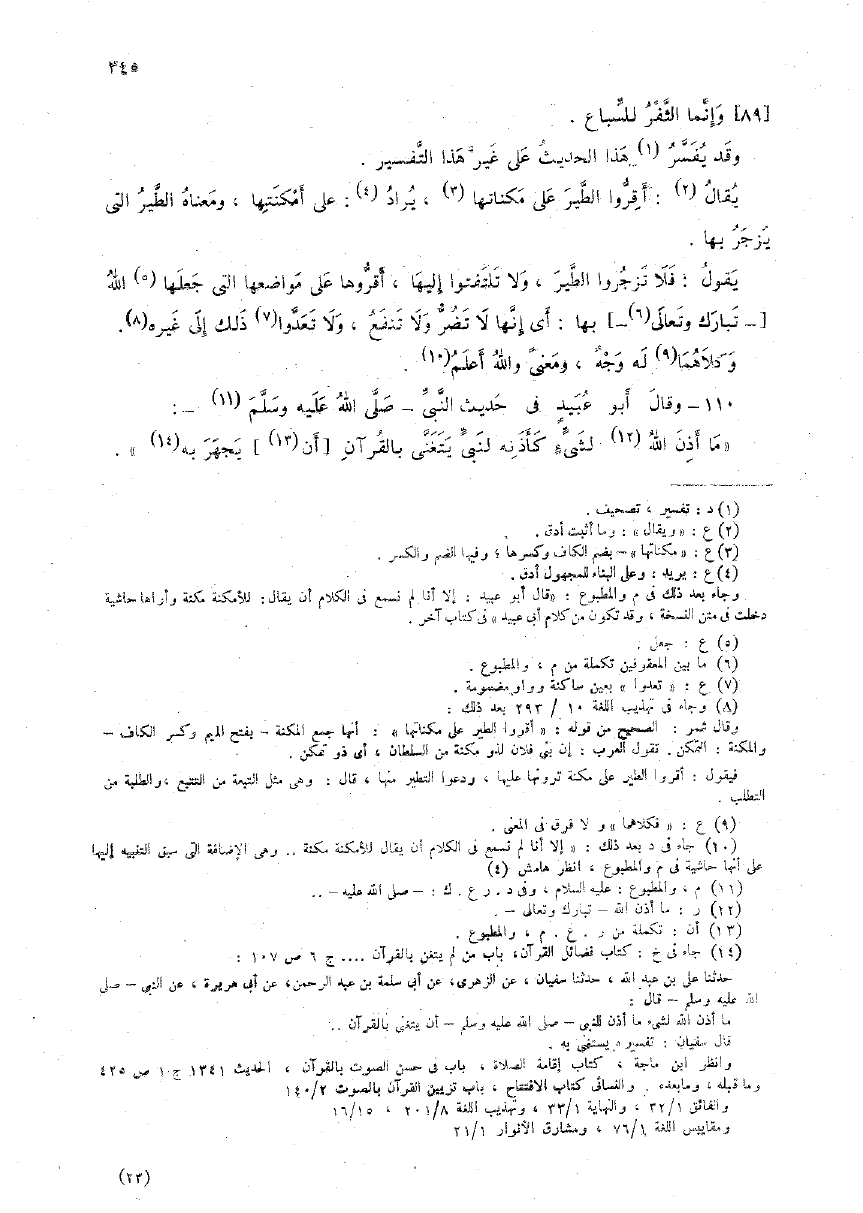 ٣٤٥
[٨٩] وَإِنَّما الثَّفْرُ للسِّباع .
وقَد يُفَسَّرُ (١) هَذا الحديثُ عَلى غَيرِ هَذا التَّفسير .
يُقالُ (٢) : أَقِرُّوا الطَّيرَ عَلى مَكناتها (٣) ، يُرادُ (٤) : على أَمْكنَتِها ، ومَعناهُ الطَّيرُ التى
يَزجَرُ بها .
يَقولُ : فَلَا تَزجُروا الطَّيرَ ، وَلا تَلتَفتوا إليهَا ، أَقرُّوها عَلى مَواضعها التى جَعلَها (٥) اللهُ
[ــ تَبارَك وتَعالَى (٦) ــ] بها : أَى إنَّها لَا تَضُرُّ وَلَا تَنفَعُ ، وَلَا تَعَدَّوا (٧) ذَلك إلَى غَيره (٨).
وَكلاَهُمَا (٩) لَه وَجْهٌ ، ومَعنىً واللهُ أعلَمُ (١٠) .
١١٠ ــ وقالَ أَبو عُبَيدٍ فى حَديث النَّبىِّ ــ صَلَّى اللهُ عَلَيه وسَلَّمَ (١١) ــ :
« مَا أَذِنَ اللهُ (١٢) لشَىءٍ كَأَذَنِه لنَبىٍّ يَتَغَنَّى بالقُرآنِ [ أَن (١٣) ] يَجهَرَ به (١٤) » .
(١) د : تفسير ، تصحيف .
(٢) ع : « ويقال » : وما أثبت أدق .
(٣) ع : « مكناتها » – بضم الكاف وكسرها ؛ وفيها الضم والكسر .
(٤) ع : يريد : وعلى البناء للمجهول أدق .
وجاء بعد ذلك فى م والمطبوع : «قال أبو عبيد : إلا أنا لم نسمع فى الكلام أن يقال : للأمكنة مكنة وأراها حاشية
دخلت فى متن النسخة ، وقد تكون من كلام أبى عبيد » فى كتاب آخر .
(٥) ع : جعل .
(٦) ما بين المعقوفين تكملة من م ، والمطبوع .
(٧) ع : « تعدوا » بعين ساكنة وواو مضمومة .
(٨) وجاء فى تهذيب اللغة ١٠ / ٢٩٣ بعد ذلك :
وقال شمر : الصحيح من قوله : « أقروا الطير على مكناتها » : أنها جمع المكنة – بفتح الميم وكسر الكاف –
والمكنة : التمكن. تقول العرب : إن بنى فلان لذو مكنة من السلطان ، أى ذو تمكن .
فيقول : أقروا الطير على مكنة ترونها عليها ، ودعوا التطير منها ، قال : وهى مثل التبعة من التتبع ، والطلبة من
التطلب .
(٩) ع : « فكلاهما » و لا فرق فى المعنى .
(١٠) جاء فى د بعد ذلك : « إلا أنا لم نسمع فى الكلام أن يقال للأمكنة مكنة .. وهى الإضافة التى سبق التنبيه إليها
على أنها حاشية فى م والمطبوع ، انظر هامش (٤)
(١١) م ، والمطبوع : عليه السلام ، وفى د . ر ع . ك : – صلى الله عليه – ..
(١٢) ر : ما أذن الله – تبارك وتعالى – .
(١٣) أن : تكملة من ر . ع . م ، والمطبوع .
(١٤) جاء فى خ : كتاب فضائل القرآن، باب من لم يتغن بالقرآن .... ج ٦ ص ١٠٧ :
حدثنا على بن عبد الله ، حدثنا سفيان ، عن الزهرى، عن أبى سلمة بن عبد الرحمن، عن أبى هريرة ، عن النبى – صلى
الله عليه وسلم – قال :
ما أذن الله لشىء ما أذن للنبى – صلى الله عليه وسلم – أن يتغنى بالقرآن ..
قال سفيان : تفسيره يستغنى به .
وانظر ابن ماجة ، كتاب إقامة الصلاة ، باب فى حسن الصوت بالقرآن ، الحديث ١٣٤١ ج ١ ص ٤٢٥
وما قبله ، ومابعده . والنسائى كتاب الافتتاح ، باب تزيين القرآن بالصوت ٢/١٤٠
والفائق ١/٣٢ ، والنهاية ١/٣٣ ، وتهذيب اللغة ٨/٢٠١ ، ١٥/١٦
ومقاييس اللغة ١/٧٦ ، ومشارق الأنوار ١/٢١
(٢٣)